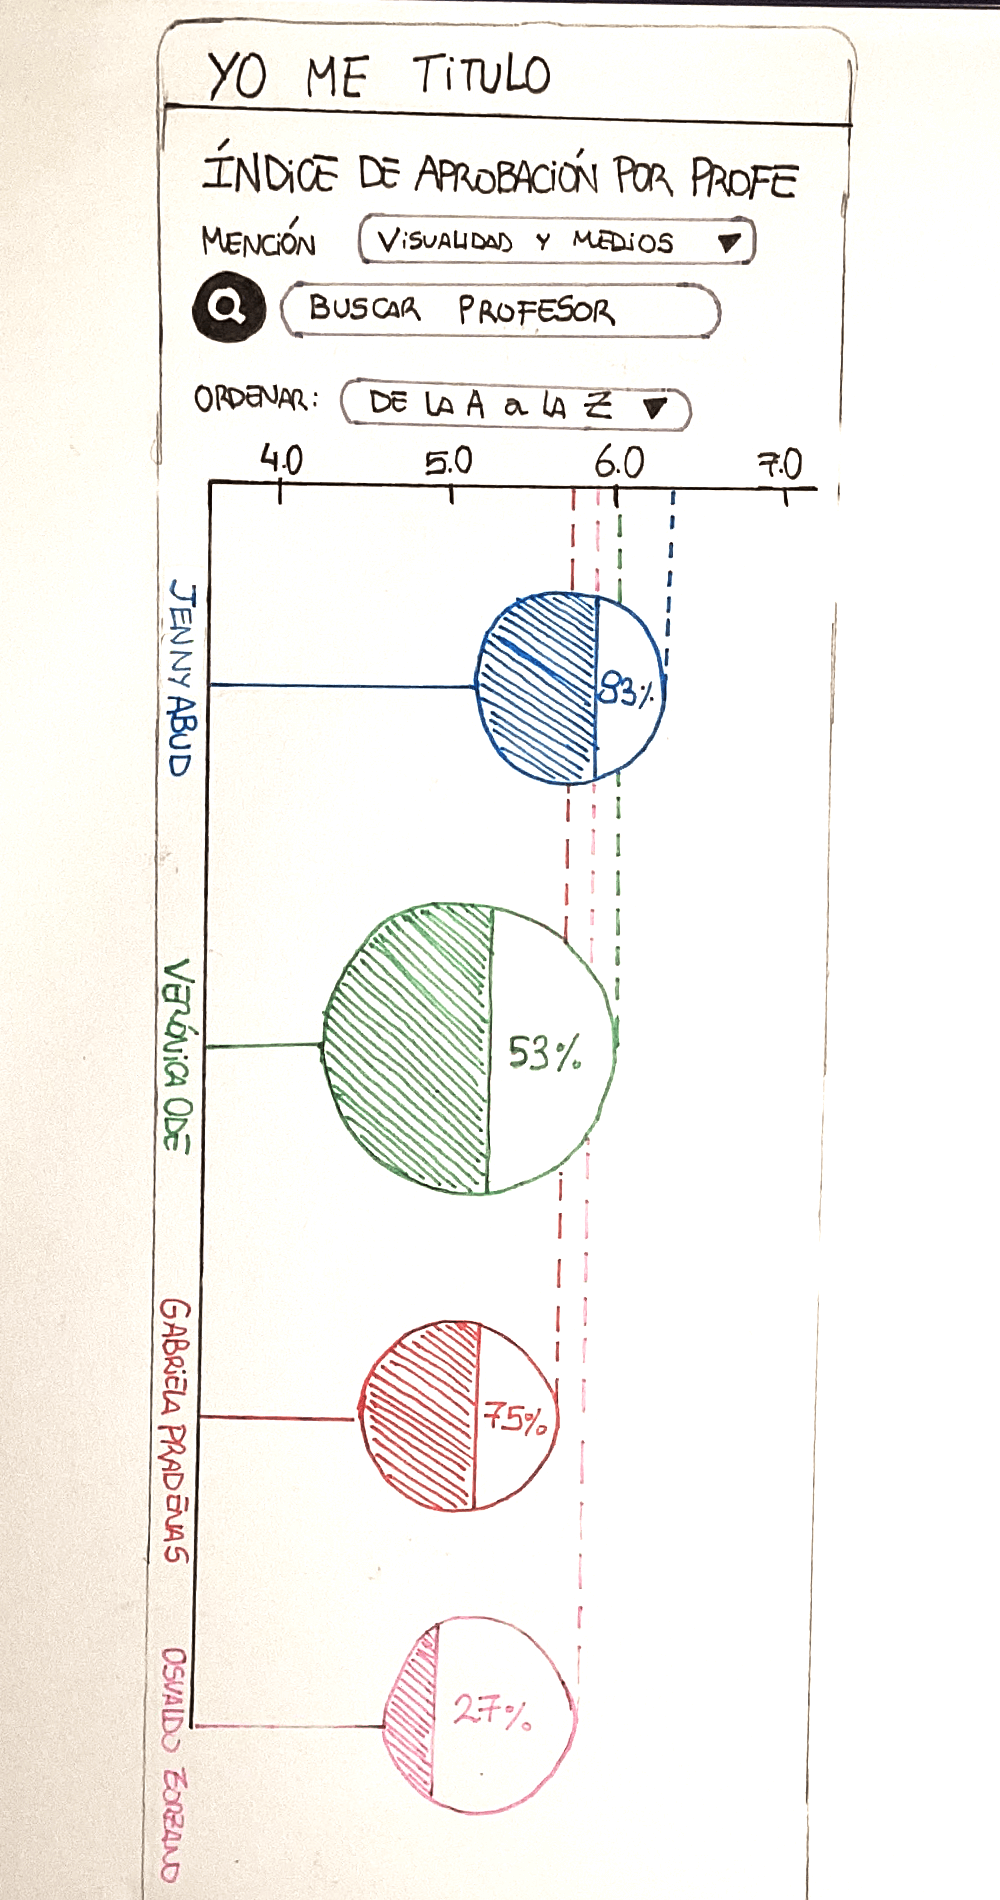 YO ME TiTULO
ÍNDiCE DE APROBACIÓN POR PROFE
MENCiÓN
ViSUALIDAD Y MEDiOS
BUSCAR PROFESOR
ORDENAR:
DE LA A a LA Z
4.0 5.0 6.0 7.0
JENNY ABUD
83%
VERÓNiCA ODE
53%
GABRiELA PRADENAS
75%
OSVALDO ZORZANO
27%